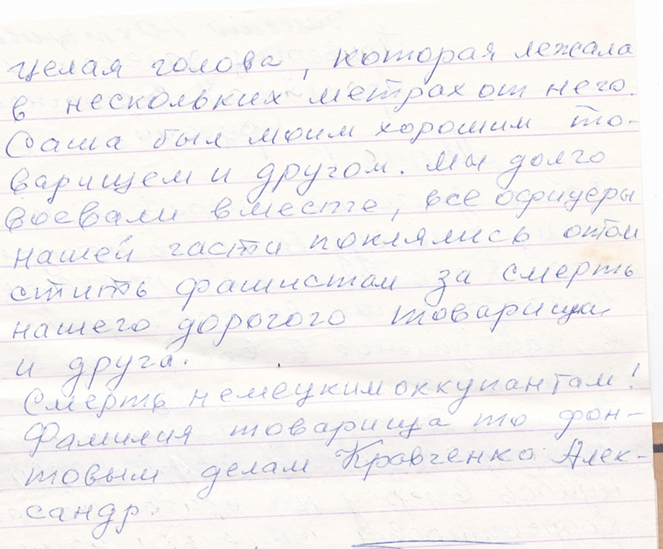 целая голова, которая лежала
в нескольких метрах от него.
Саша был моим хорошим то-
варищем и другом. Мы долго
воевали вместе, все офицеры
нашей части поклялись отом
стить фашистам за смерть
нашего дорогого товарища
и друга.
Смерть немецким оккупантам!
Фамилия товарища то фон-
товым делам Кравченко Алек-
сандр.